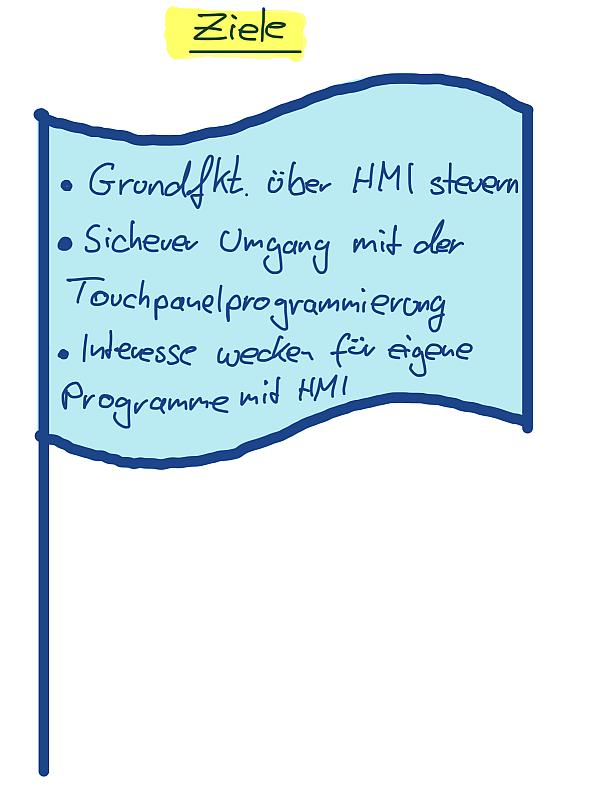 Ziele
• Grundfkt. über HMI steuern
• Sicherer Umgang mit der
Touchpanelprogrammierung
• Interesse wecken für eigene
Programme mit HMI